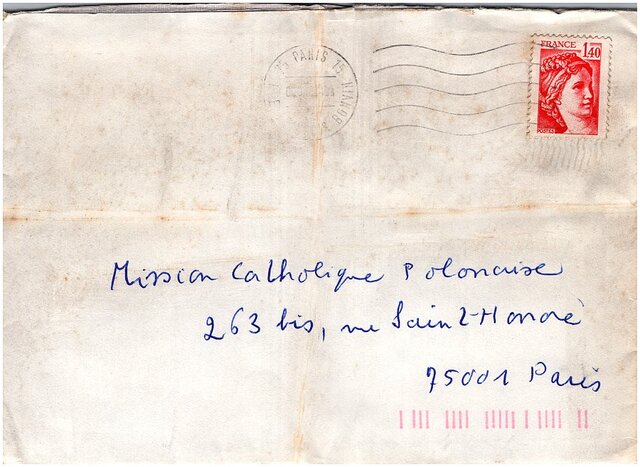 PARIS 15
FRANCE 1,40
Mission Catholique Polonaise
263 bis, rue Saint-Honoré
75001 Paris